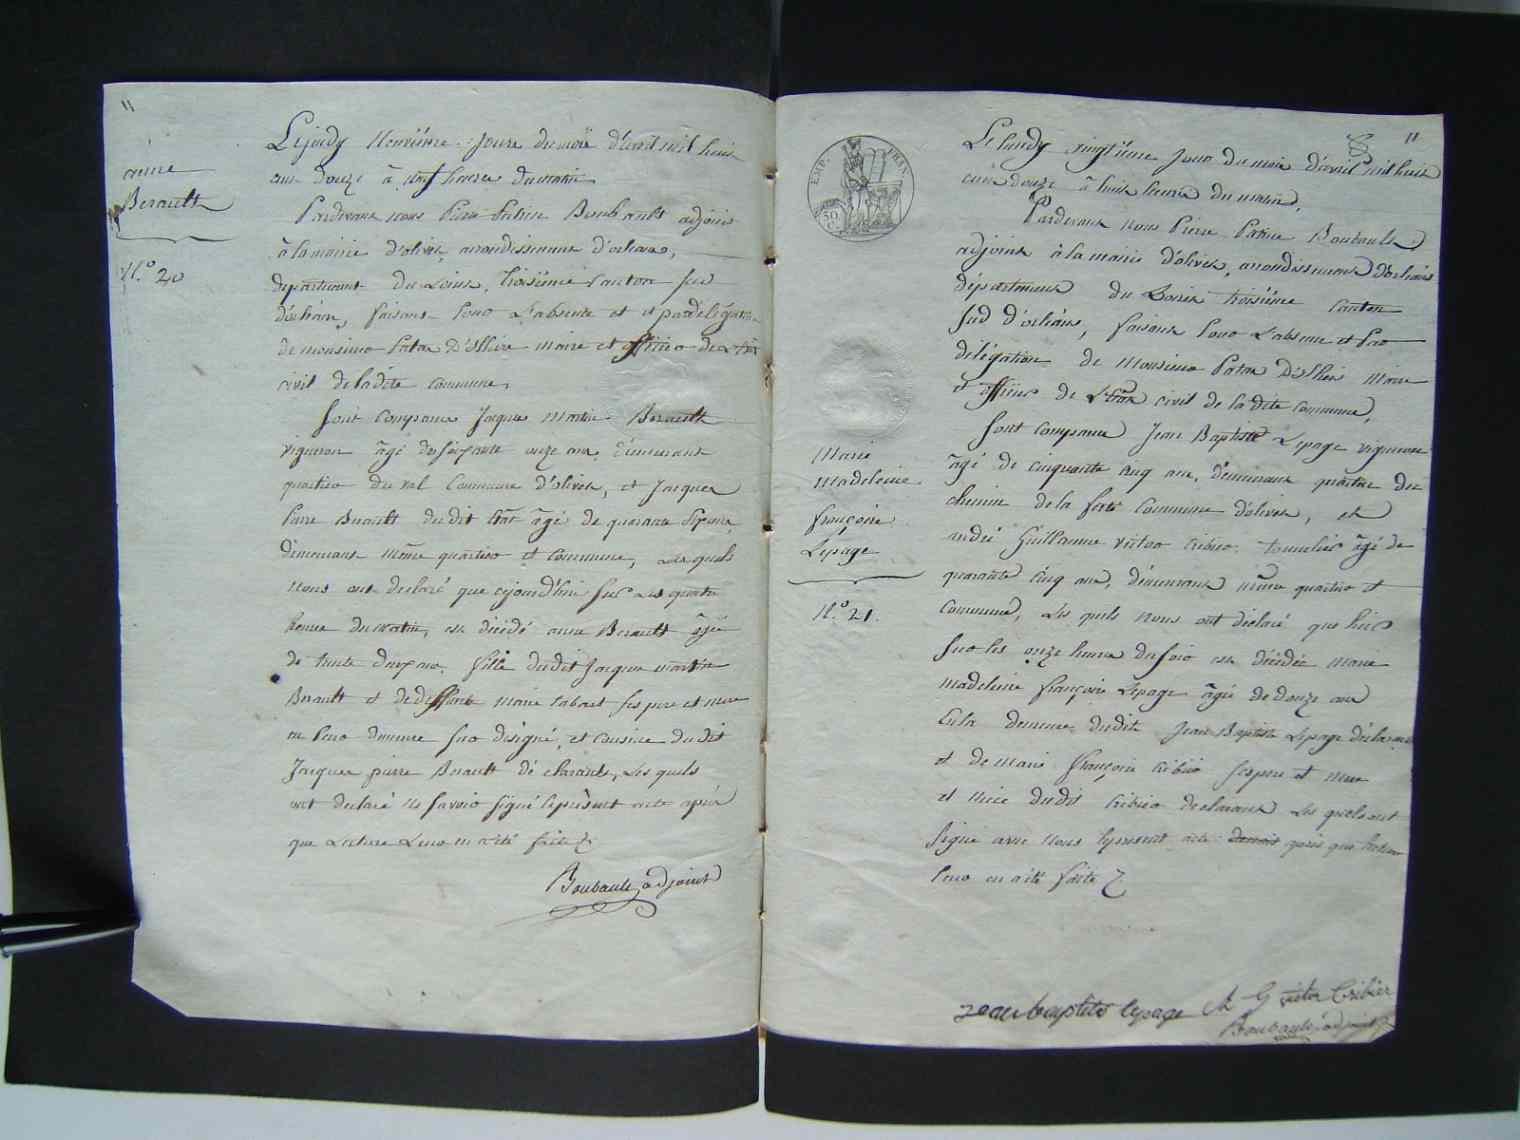 11
anne
Berault
N.o 20
Le jeudy neuvième jour du mois d'avril mil huit
cent douze à neuf heures du matin
Pardevant nous Pierre Patrice Boubault adjoint
à la mairie d'olivet, arrondissement d'orleans,
departement du Loiret, troisième canton sud
d'orléans, faisant pour l'absence et par délégation
de monsieur Patas d'Illiers maire et officier de L'état
civil de la dite commune,
Sont comparus Jacques Martin Berault
vigneron âgé de soixante onze ans, demeurant
quartier du val commune d'olivet, et Jacques
Pierre Berault du dit état âgé de quarante
demeurant même quartier et commune, Les quels
nous ont declaré que cejourd'hui sur Les quatre
heures du matin, est décédé anne Berault âgée
de trente deux ans, fille du dit Jacques martin
Berault et de deffunte marie tabart ses pere et mere
en leur demeure sus désigné, et cousine du dit
Jacques pierre Berault déclarants, Les quels
ont declaré ne savoir signé le présent acte après
que Lecture Leur en a été faite
Boubault adjoint
11
EMP. FRAN.
50 C.
Marie
Madeleine
françoise
Lepage
N.o 21.
Le lundy vingtième jour du mois d'avril mil huit
cent douze à huit heures du matin,
Pardevant nous Pierre Patrice Boubault
adjoint à la mairie d'olivet, arrondissement d'orléans
département du Loiret troisième canton
sud d'orléans, faisant pour L'absence et par
délégation de Monsieur Patas d'Illiers Maire
et officier de L'état civil de la dite commune,
Sont comparus Jean Baptiste Lepage vigneron
âgé de cinquante cinq ans, demeurant quartier du
chemin de la ferté commune d'olivet, et
andré Guillaume victor cribier tonnelier âgé de
quarante cinq ans, demeurant même quartier et
commune, Les quels nous ont déclaré que hier
sur les onze heures du soir est décédée Marie
Madeleine françoise Lepage âgée de douze ans
en la demeure du dit Jean Baptiste Lepage déclarant
et de Marie françoise cribier ses pere et mere
et niece du dit cribier declarants Les quels ont
signé avec nous le present acte après que lecture
leur en a été faite
jean baptiste lepage A G victor Cribier
Boubault adjoint